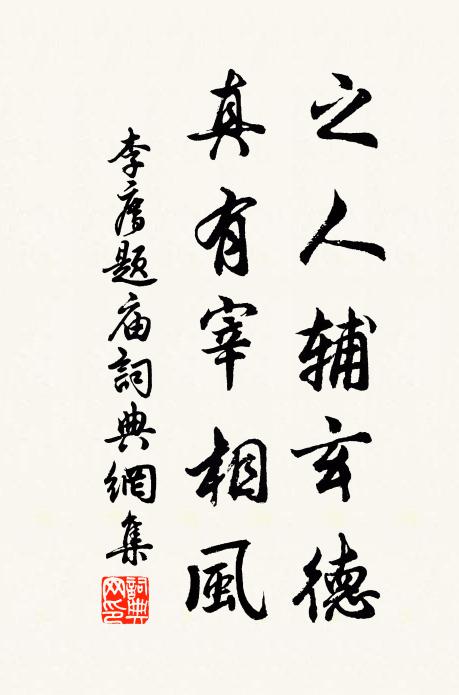 之人辅玄德
真有宰相風
李廌題庙詞典網集
詞典网印